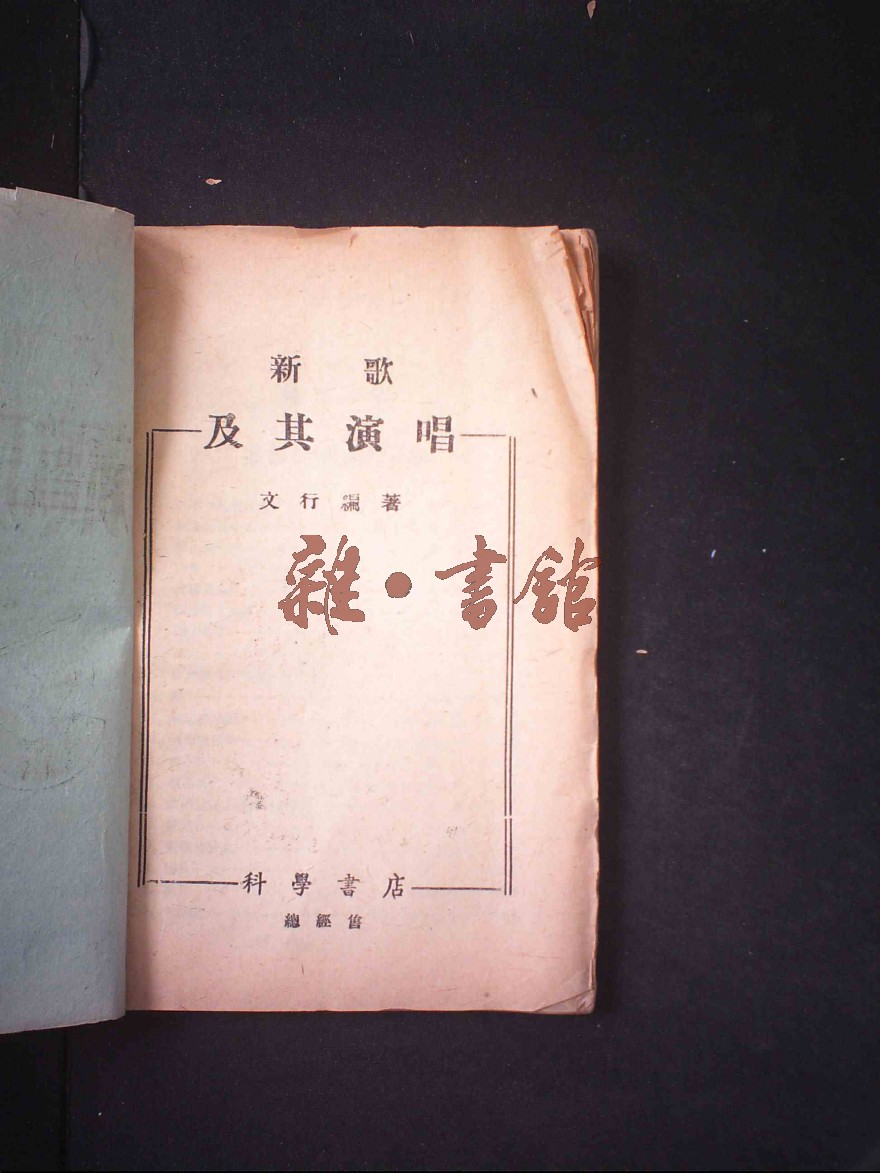 新歌
及其演唱
文行編著
雜·書館
科學書店
總經售